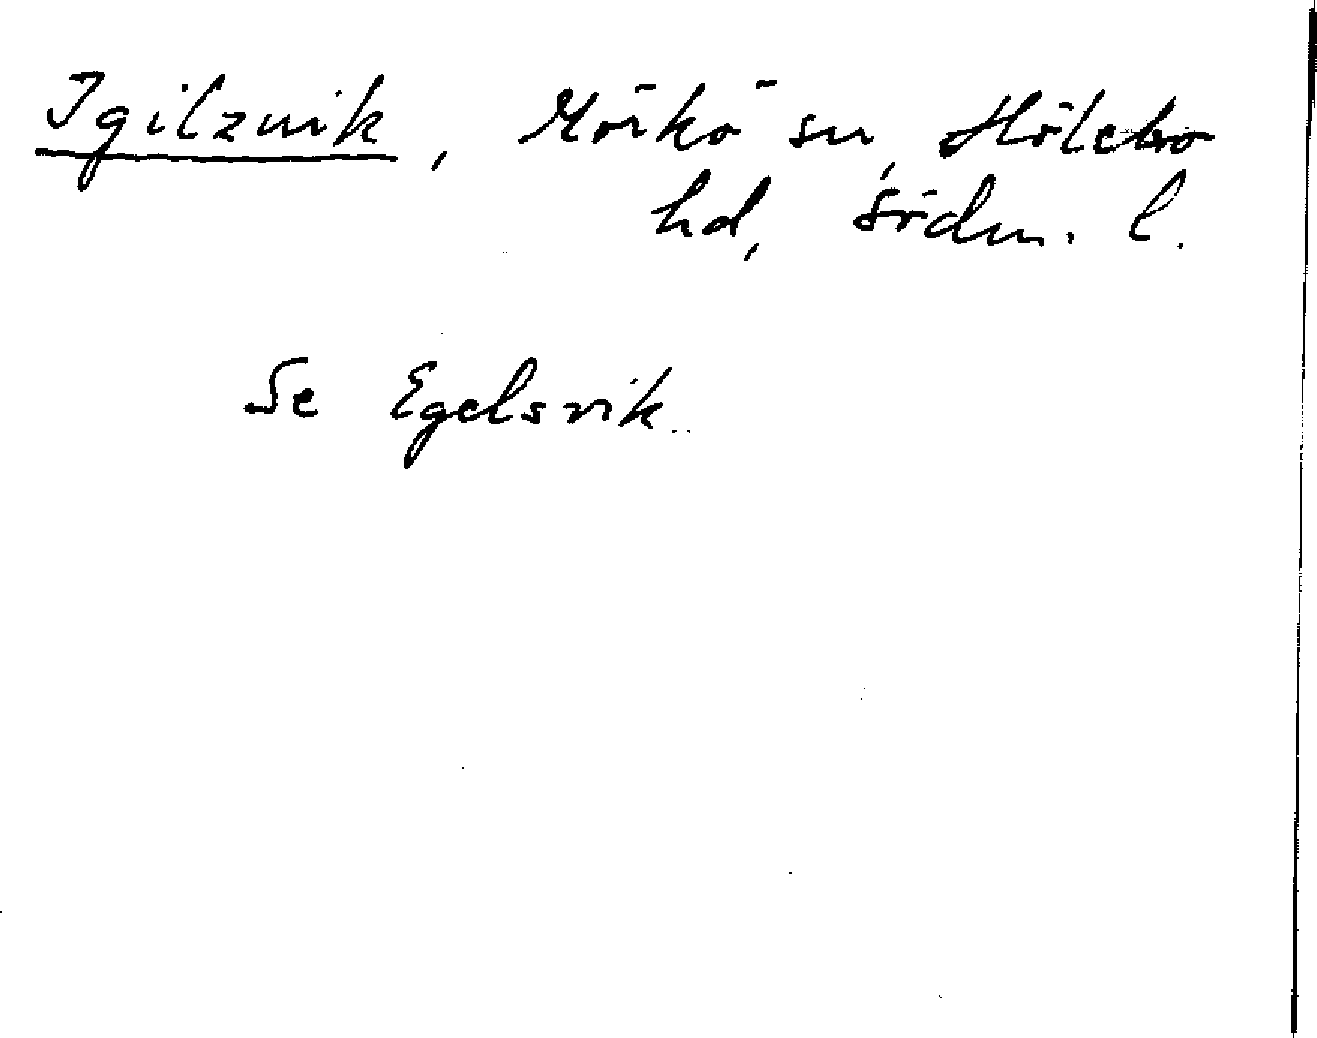 Igilzwik, Mörkö sn, Hölebo
hd, Södm. l.
Se Egelsvik.